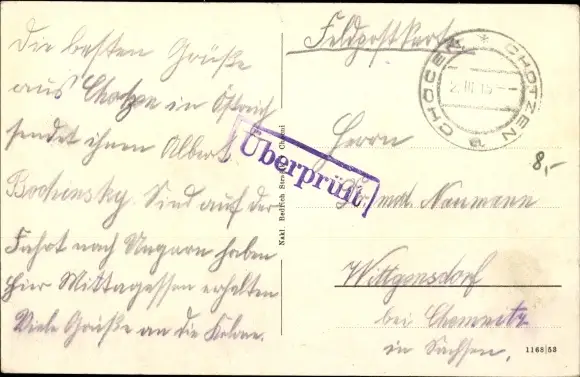 Die besten Grüße
aus Chotzen in Östreich
sendet ihnen Albert
Sind auf der
Fahrt nach Ungarn haben
hier Mittagessen erhalten
Viele Grüße an die Kolone.
Nakl. Bedřich
Überprüft
Feldpostkarte
CHOCEŇ * CHOTZEN
2. III 15
a
8,-
Herrn
Dr. med. Naumann
Wittgensdorf
bei Chemnitz
in Sachsen.
1168|53